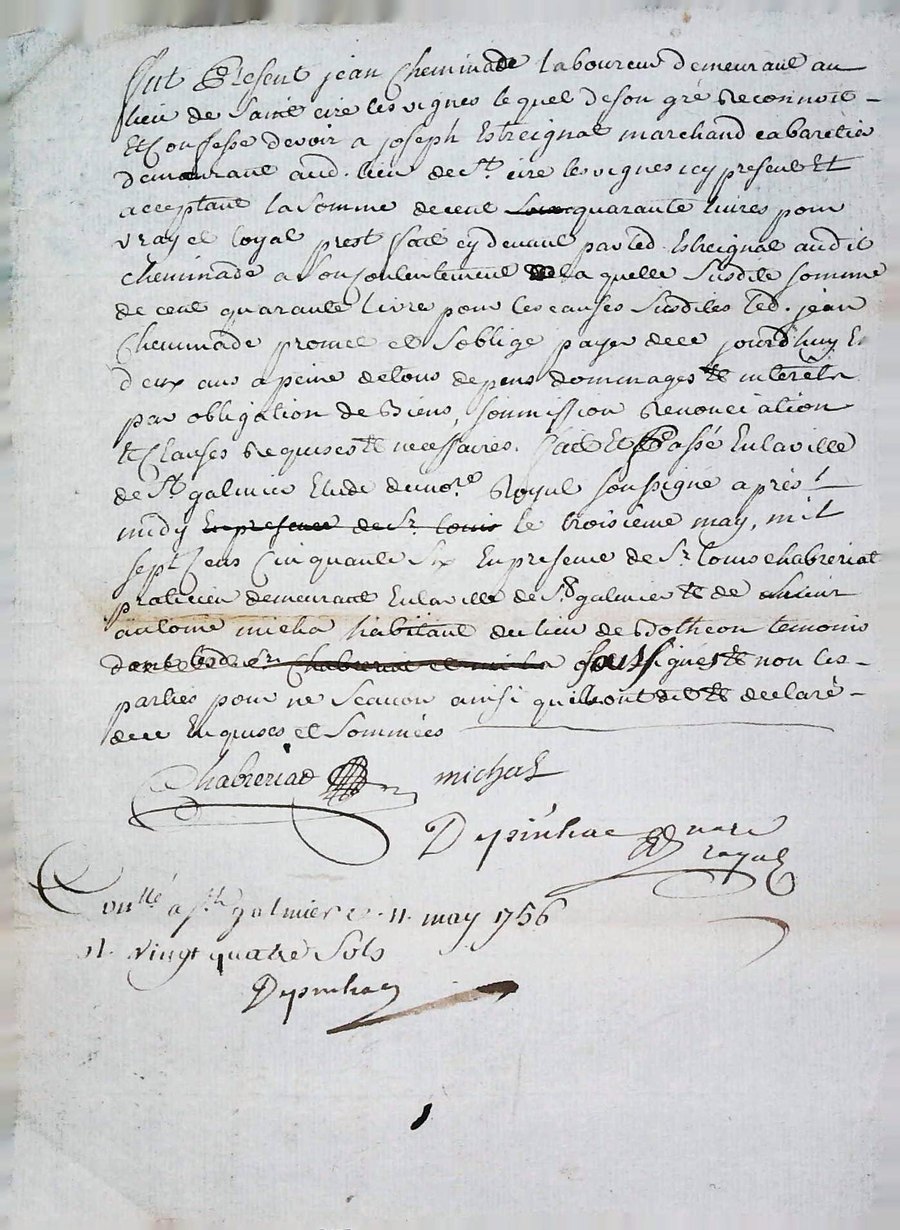 Fut Present jean Cheminade laboureur demeurant au
lieu de Saint cire les vignes lequel de son gré Reconnoit
Et Confesse devoir a joseph Estreignat marchand cabaretier
demeurant aud. lieu de St. cire les vignes icy present Et
acceptant la somme de cent quarante livres pour
vray et loyal prest fait cy devant par led. Estreignat audit
cheminade a son contentement la quelle susdite somme
de cent quarante livre pour les causes susdites led. jean
Cheminade promet et s'oblige payer de ce jourd'huy En
deux ans a peine de tous depens dommages Et interets
par obligation de Biens, soumission Renonciation
Et Clauses Requises Et necessaires. fait Et Passé En la ville
de St galmier Etude du nore. Royal soussigné après
midy en presence de Sr. louis le troisieme may, mil
sept Cens Cinquante Six En presence de Sr louis chabreriat
praticien demeurant En la ville de St galmier Et de
antoine micha habitant du lieu de Botheon temoins
Chabreriat et soussignés Et non les
parties pour ne scavoir ainsi qu'ils ont dit Et declaré
de ce Enquises et Sommées
Chabreriat michal
Depinhac nore
royal
Conllé a st galmier le 11 may 1756
vingt quatre sols
Depinhac